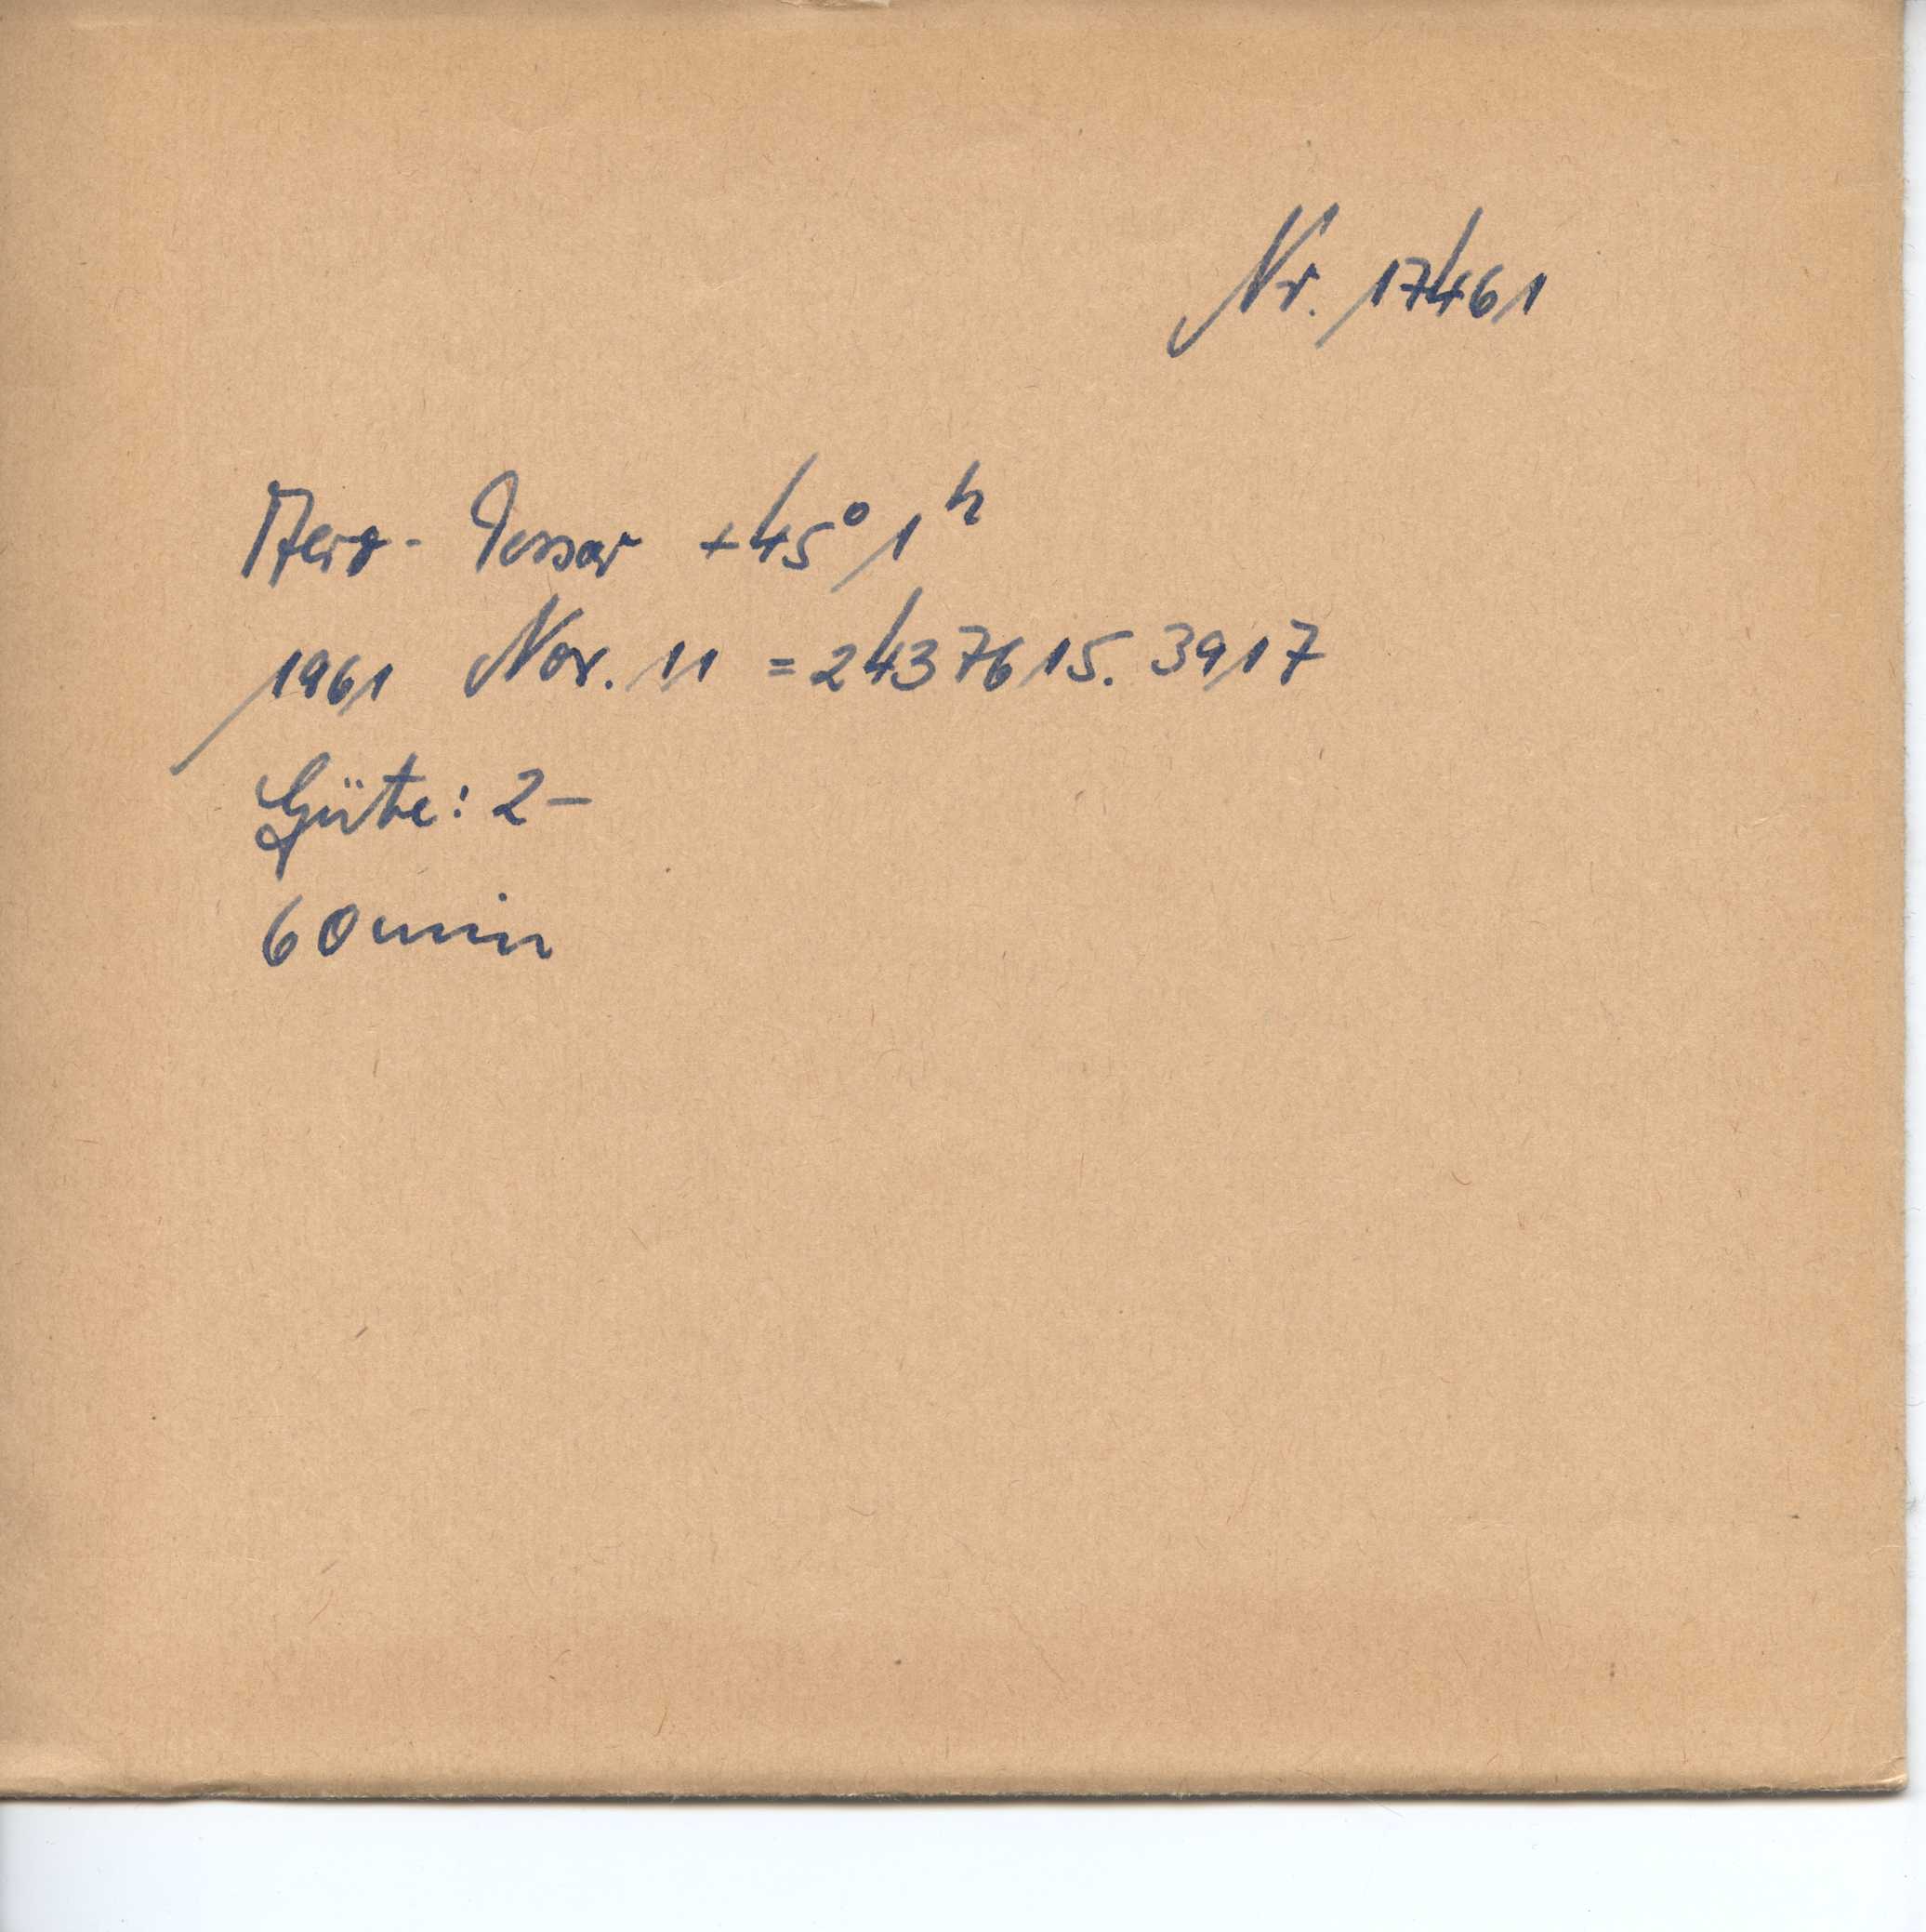 Nr. 17461
Aero-Tessar +45° 1h
1961 Nov. 11 = 2437615.3917
Güte: 2-
60min